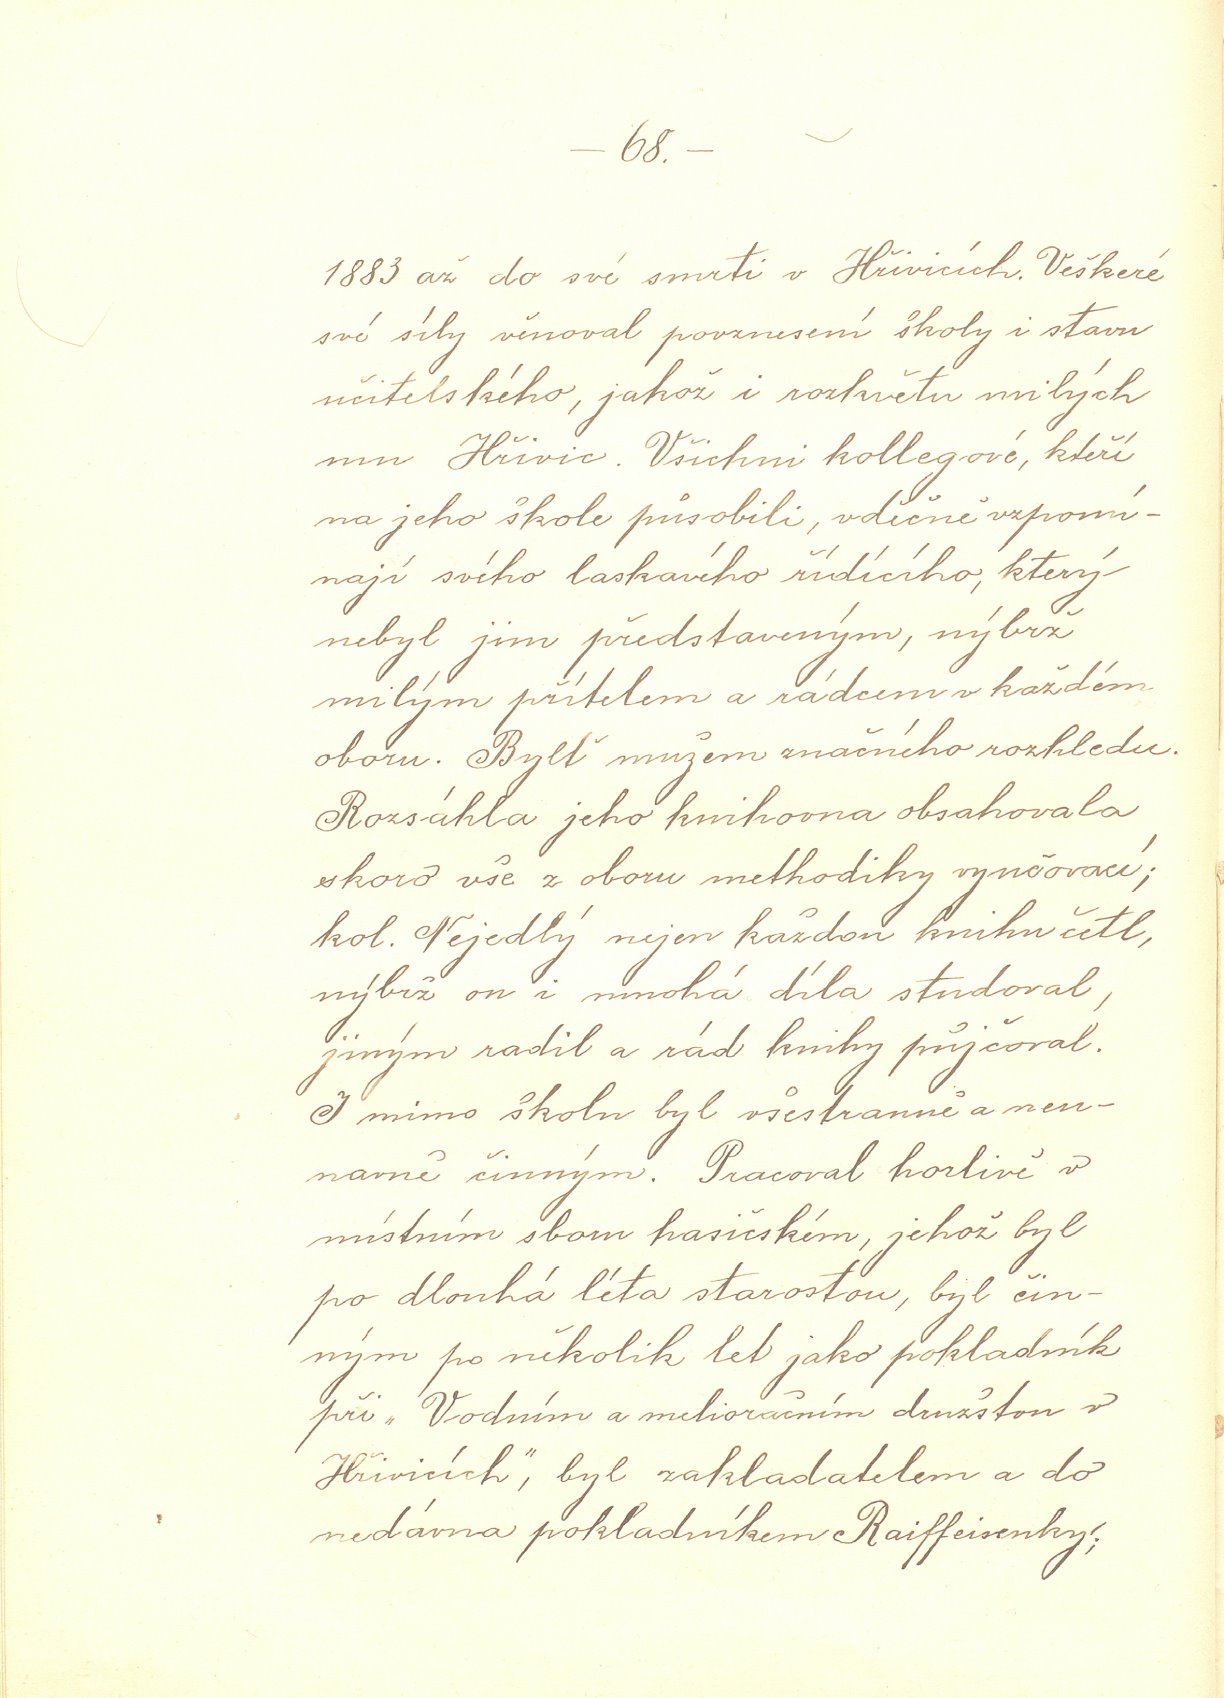 — 68. —
1883 až do své smrti v Hřivicích. Veškeré
své síly věnoval povznesení školy i stavu
učitelského, jakož i rozkvětu milých
mu Hřivic. Všichni kollegové, kteří
na jeho škole působili, vděčně vzpomí-
nají svého laskavého řídícího, který
nebyl jim představeným, nýbrž
milým přítelem a rádcem v každém
oboru. Bylť mužem značného rozhledu.
Rozsáhla jeho knihovna obsahovala
skoro vše z oboru methodiky vyučovací;
kol. Nejedlý nejen každou knihu četl,
nýbrž on i mnohá díla studoval,
jiným radil a rád knihy půjčoval.
I mimo školu byl všestranně a neu-
navně činným. Pracoval horlivě v
místním sboru hasičském, jehož byl
po dlouhá léta starostou, byl čin-
ným po několik let jako pokladník
při „Vodním a melioračním družstvu v
Hřivicích", byl zakladatelem a do
nedávna pokladníkem Raiffeisenky;